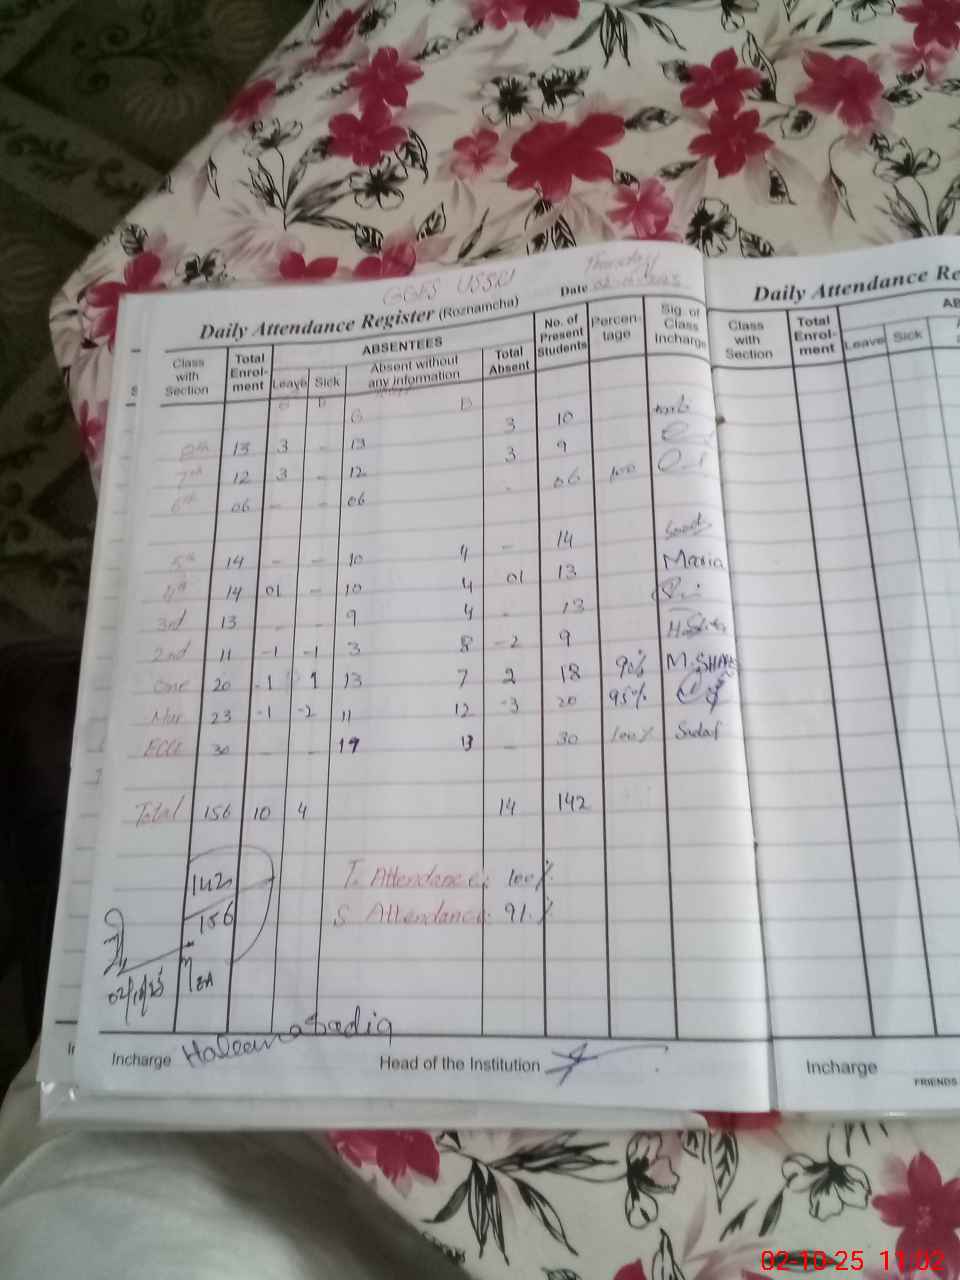 GGES USSU
Thursday
Date 02-10-2025
Daily Attendance Register (Roznamcha)
Class with Section | Total Enrol-ment | ABSENTEES | No. of Present Students | Percen-tage | Sig. of Class Incharge
Leave | Sick | Absent without any information | Total Absent
G B
8th 13 3 - 13 3 10
7th 12 3 - 12 3 9
6th 06 - - 06 - 06 100
5th 14 - - 10 4 - 14
4th 14 01 - 10 4 01 13 Maria
3rd 13 - - 9 4 - 13
2nd 11 -1 -1 3 8 -2 9
One 20 -1 1 13 7 2 18 90%
Nur 23 -1 -2 11 12 -3 20 95%
ECCE 30 - - 17 13 - 30 100% Sadaf
Total 156 10 4 14 142
142
156
T. Attendance: 100%
S Attendance: 91.%
02/10/25
Incharge
Head of the Institution
Daily Attendance Re
Class with Section | Total Enrol-ment | AB
Leave | Sick
Incharge
FRIENDS
02-10-25 11:02